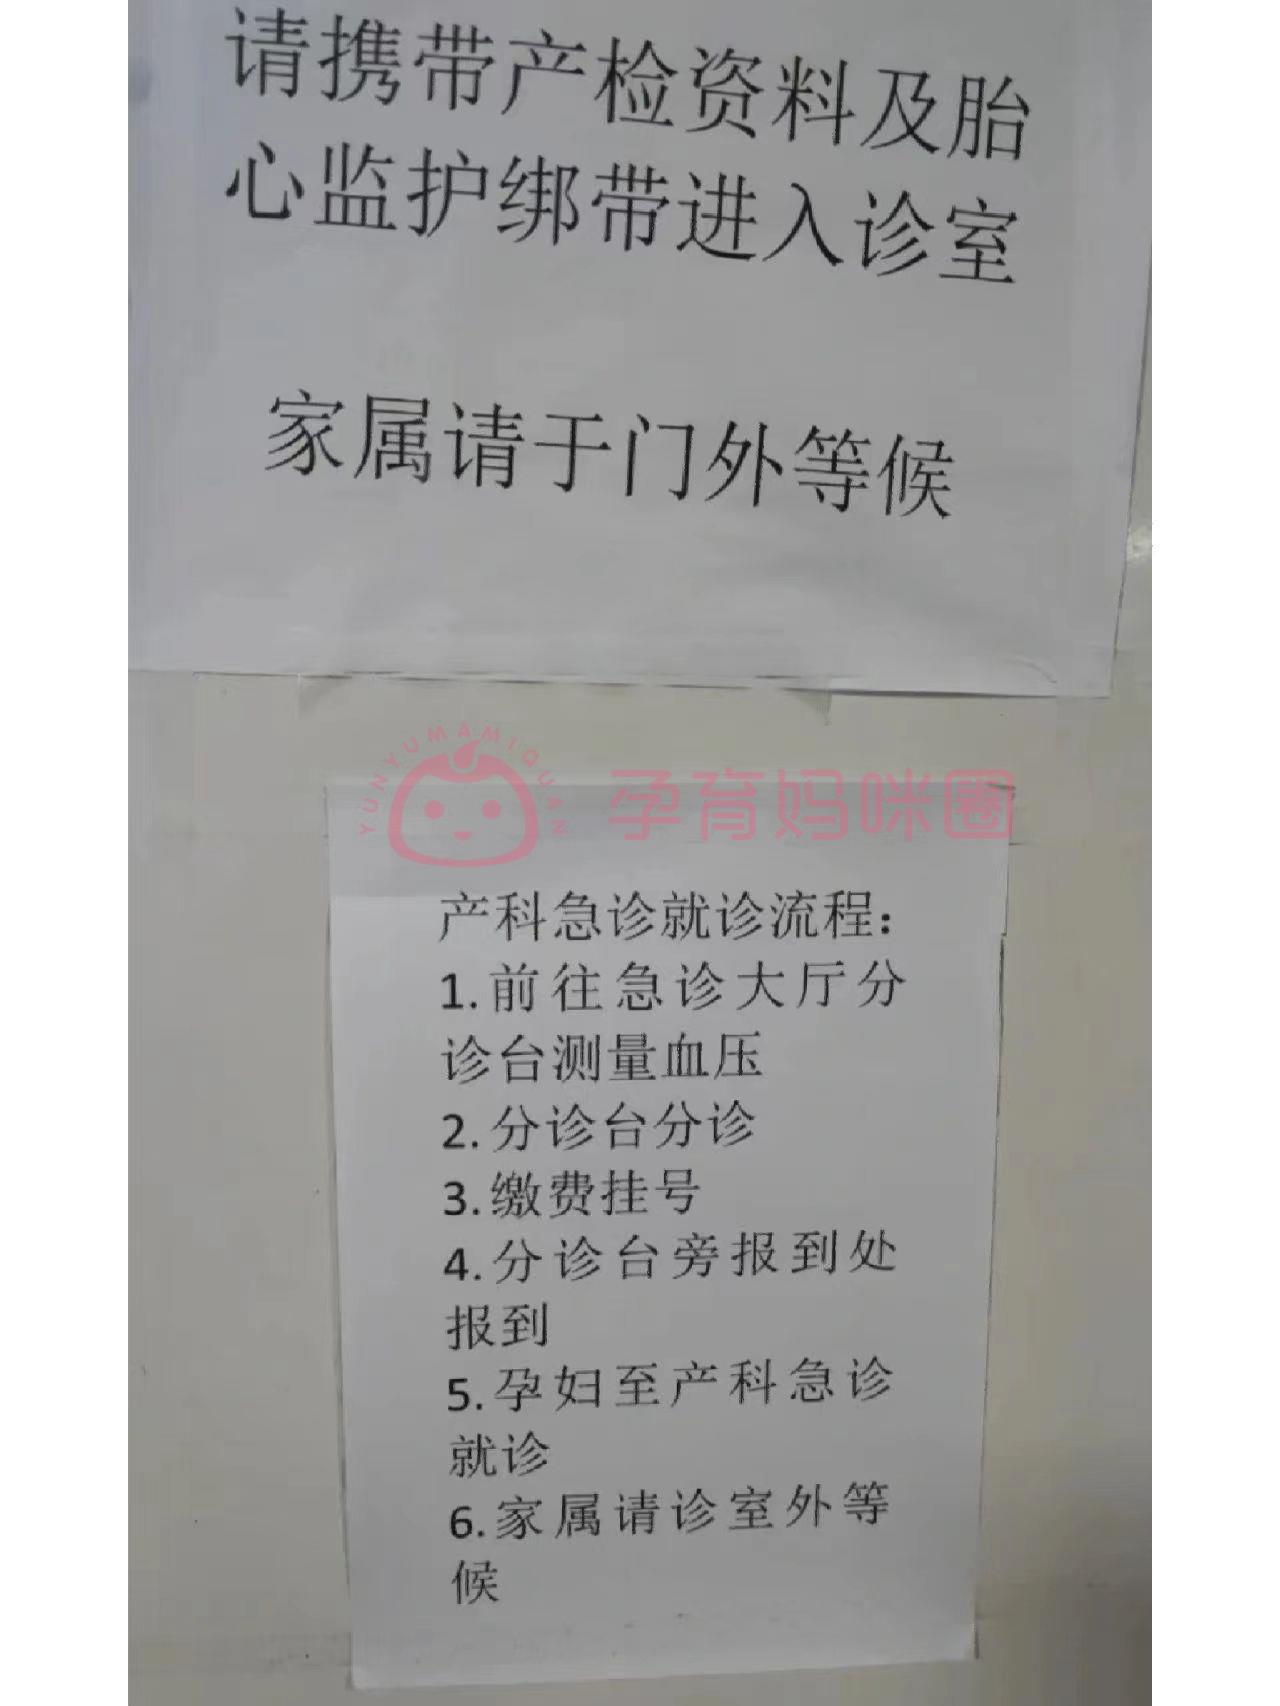 请携带产检资料及胎
心监护绑带进入诊室
家属请于门外等候
YUNYUMAMIQUAN
孕育妈咪圈
产科急诊就诊流程：
1.前往急诊大厅分
诊台测量血压
2.分诊台分诊
3.缴费挂号
4.分诊台旁报到处
报到
5.孕妇至产科急诊
就诊
6.家属请诊室外等
候